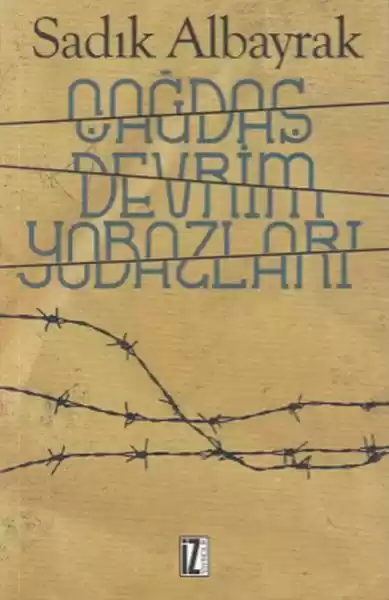 Sadık Albayrak
ÇAĞDAŞ
DEVRİM
YOBAZLARI
İZ